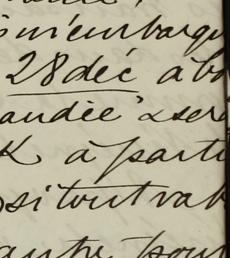 m'embarqu
28 déc à bo
andie" & ser
à parti
si tout va b
autre pour